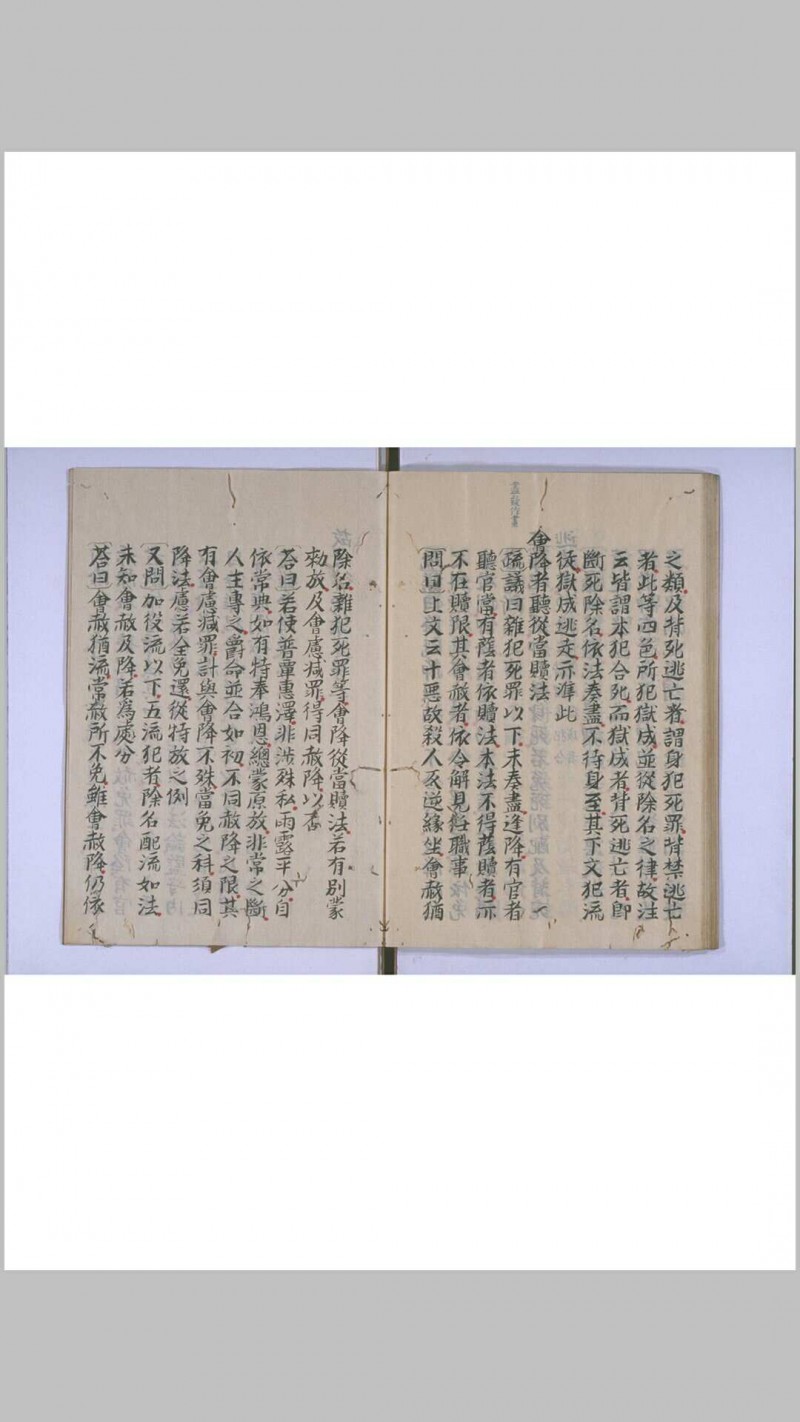 之類及背死逃亡者謂身犯死罪背禁逃亡
者此等四色所犯獄成並從除名之律故注
云皆謂本犯合死而獄成者背死逃亡者即
斷死除名依法奏盡不待身至其下文犯流
徒獄成逃走亦准此
會降者聽從當贖法
疏議曰雜犯死罪以下未奏盡逢降有官者
聽官當有蔭者依贖法本法不得蔭贖者亦
不在贖限其會赦者依令解見任職事
問曰上文云十惡故殺人反逆緣坐會赦猶
除名雜犯死罪等會降從當贖法若有別蒙
勑放及會慮減罪得同赦降以否
荅曰若使普覃惠澤非涉殊私雨露平分自
依常典如有特奉鴻恩總蒙原放非常之斷
人主專之爵命並合如初不同赦降之限其
有會慮減罪計與會降不殊當免之科須同
降法慮若全免還從特放之例
又問加役流以下五流犯者除名配流如法
未知會赦及降若為處分
荅曰會赦猶流常赦所不免雖會赦降仍依